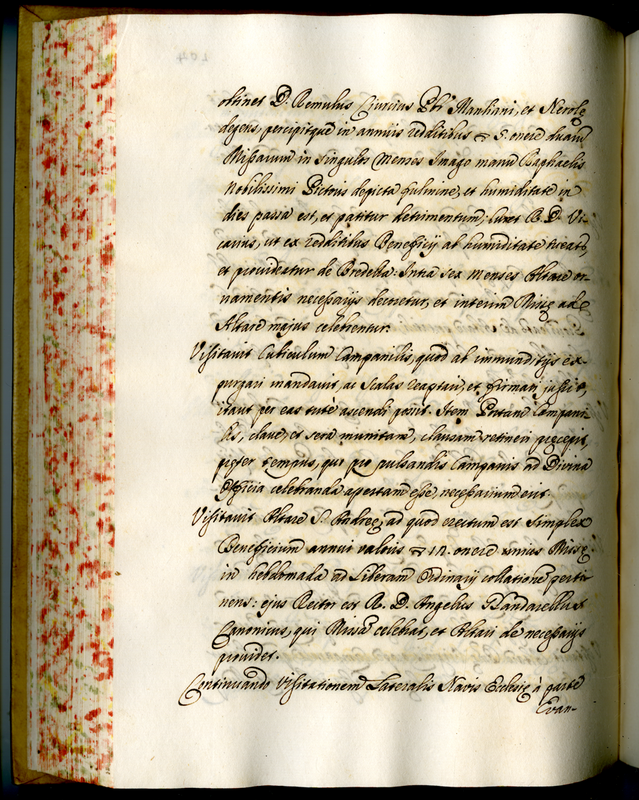 obtinet D. Romulus Ciuccius Pbr̃ Manliani, et Nerolę
degens, percipitque in annuis redditibus ▽ 5. onere duarũ
Missarum in singulos menses. Imago manu Raphaelis
nobilissimi Pictoris depicta fulmine, et humiditate in
dies passa est, et patitur detrimentum: Curet R. D. Vi-
carius, ut ex redditibus Beneficij ab humiditate tueat̃,
et provideatur de Bredella: Intra sex menses Altare or-
namentis necessarijs decoretur, et interim Missę ad
Altare majus celebrentur.
Visitavit Cubiculum Campanilis, quod ab immunditijs ex-
purgari mandavit, ac Scalas reaptari, et firmari jussit,
itaut per eas tutè ascendi possit. Item Portam Campani-
lis, clave, et sera munitam, clausam retineri pręcepit,
pręter tempus, quo pro pulsandis Campanis ad Divina
Officia celebranda apertam esse, necessarium erit.
Visitavit Altare S. Andreę, ad quod erectum est simplex
Beneficium annui valoris ▽ 12. onere unius Missę
in hebdomada ad Liberam Ordinarij collationẽ perti-
nens: ejus Rector est R. D. Angelus Flandarellus
Canonicus, qui Missã celebrat, et Altari de necessarijs
providet.
Continuando Visitationem Lateralis Navis Ecclesię à parte
Evan-